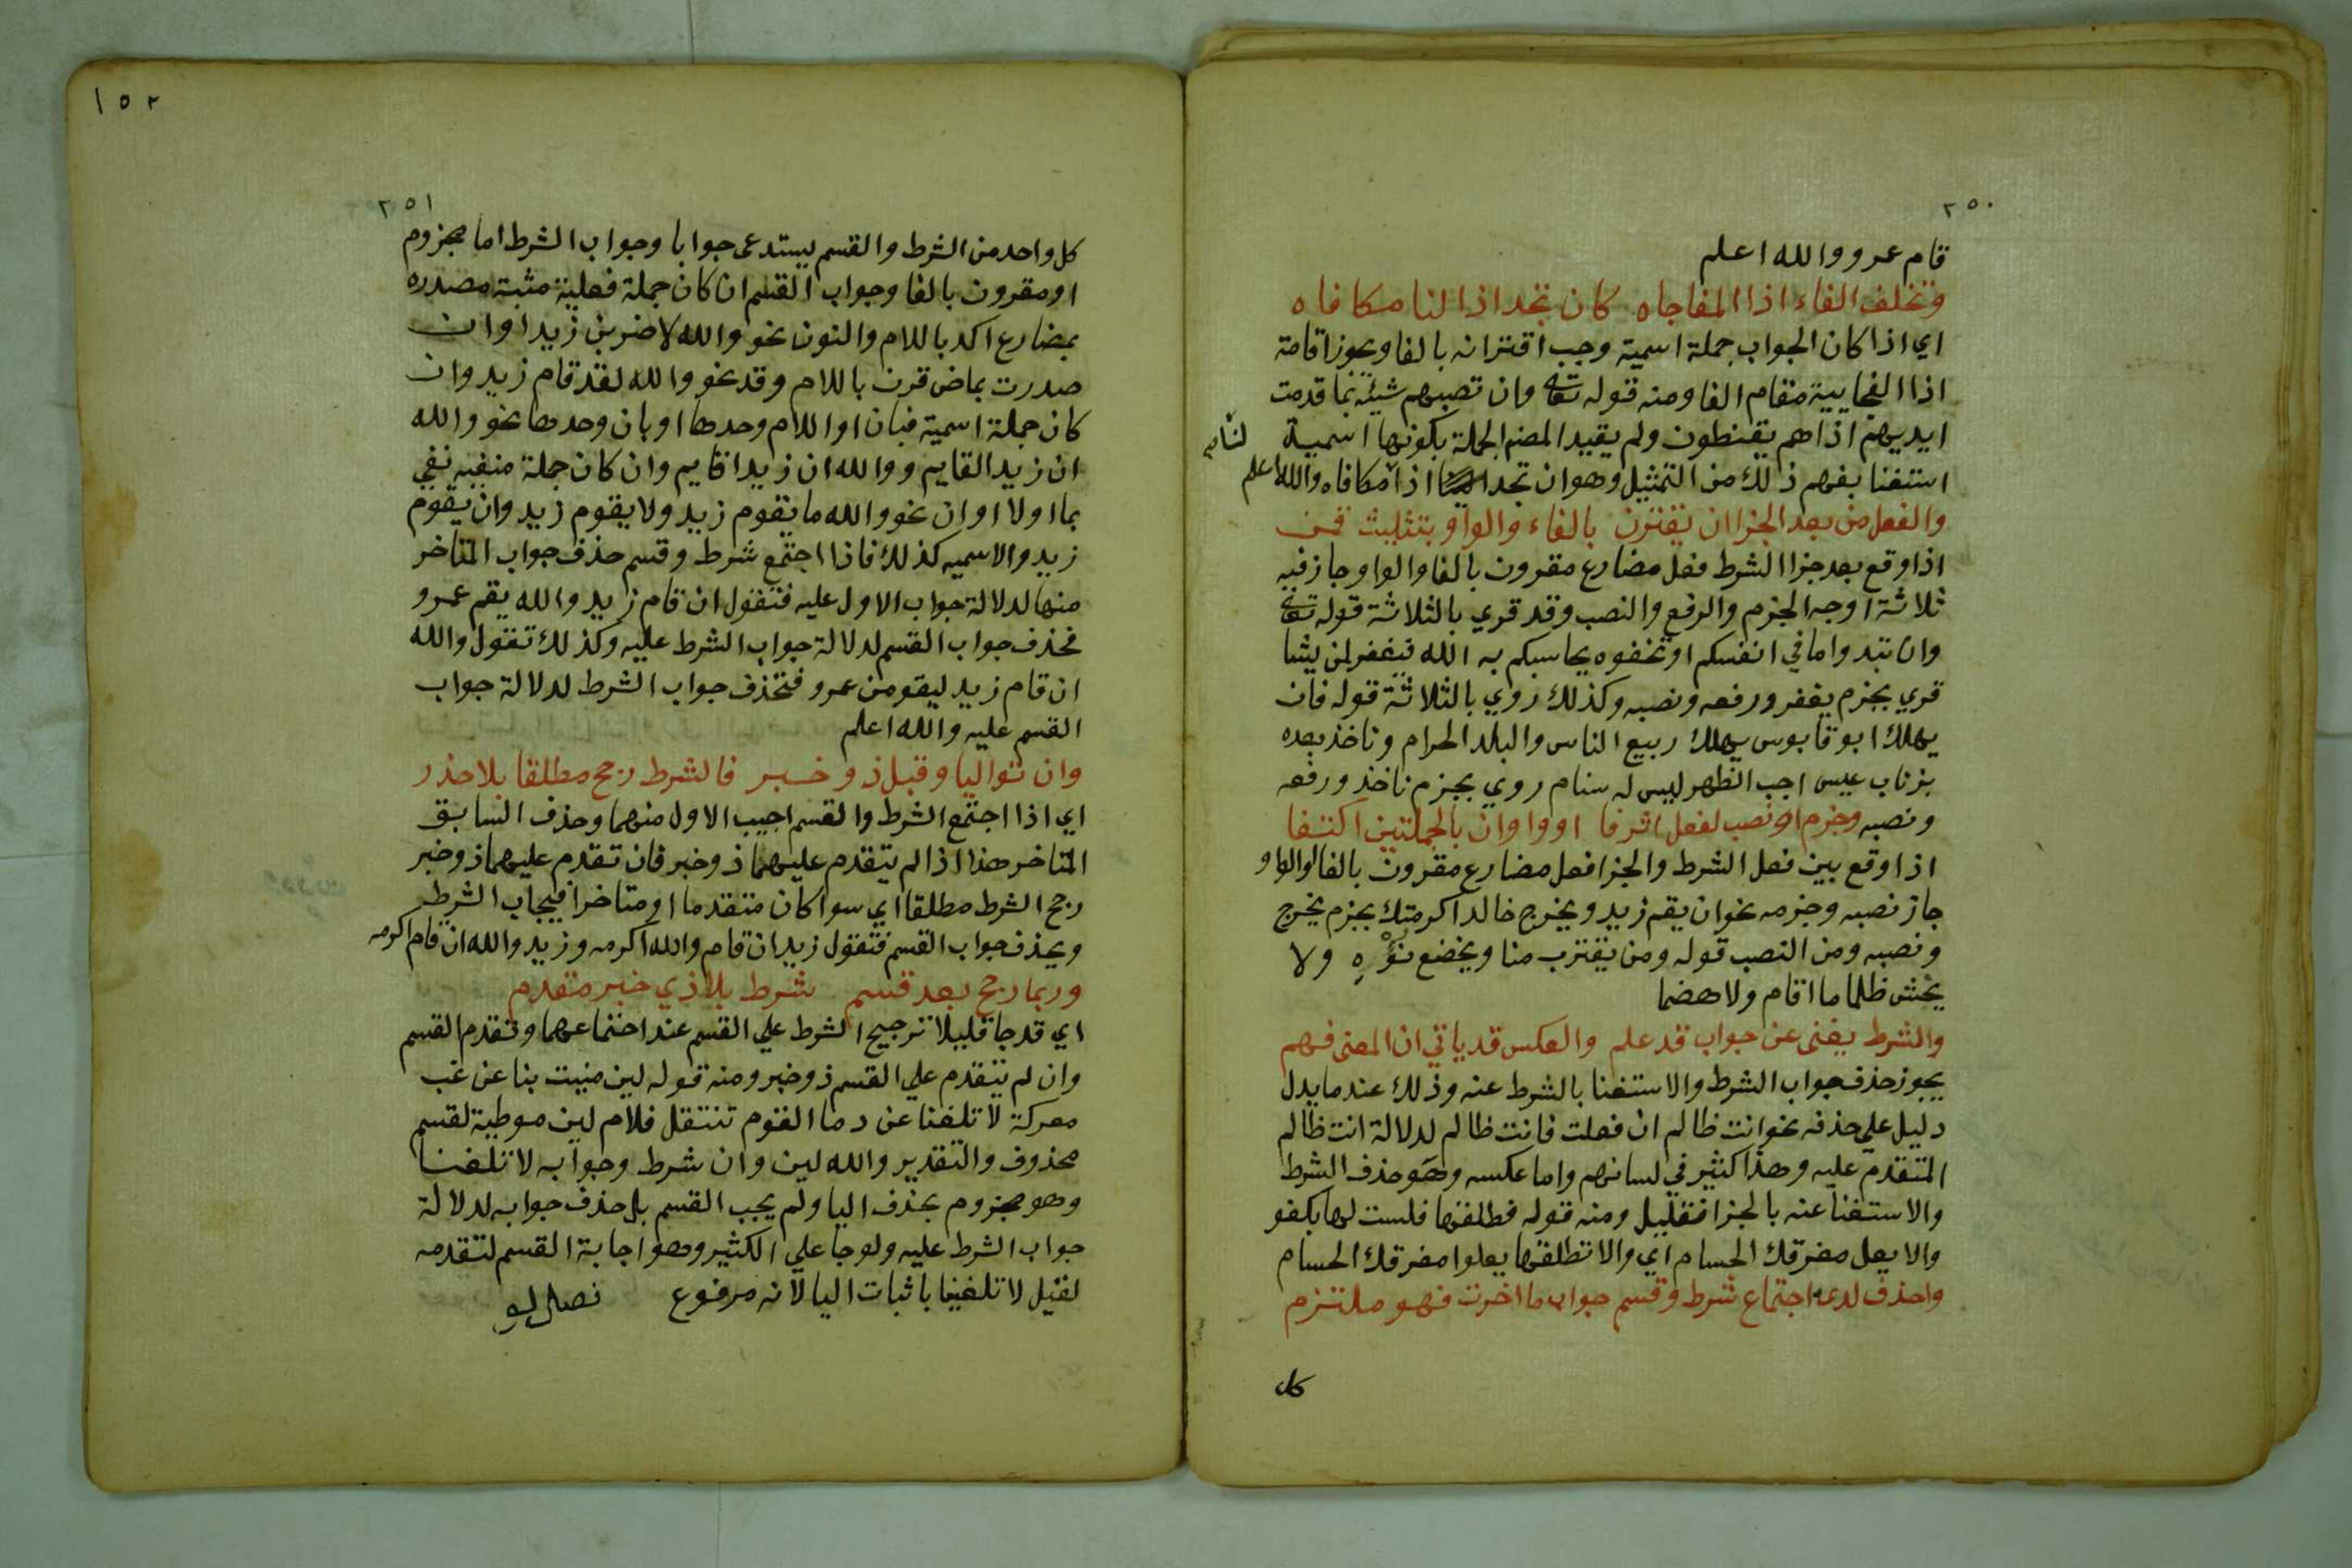 ٢٥٠
قام عمرو والله اعلم
وتخلف الفاء اذا المفاجاه كان تجد اذا لنا مكافاه
اي اذا كان الجواب جملة اسمية وجب اقترانه بالفا ويجوز اقامة
اذا الفجايية مقام الفا ومنه قوله تعا وان تصبهم سيئة بما قدمت
ايديهم اذا هم يقنطون ولم يقيد المصنم الجملة بكونها اسمية
استغنا بفهم ذلك من التمثيل وهو ان تجد اذا لنا مكافاه والله اعلم
والفعل من بعد الجزا ان يقترن بالفاء والواو بتثليث قمن
اذا وقع بعد جزا الشرط فعل مضارع مقرون بالفا والواو جاز فيه
ثلاثة اوجه الجزم والرفع والنصب وقد قري بالثلاثة قوله تعا
وان تبدوا ما في انفسكم او تخفوه يحاسبكم به الله فيغفر لمن يشا
قري بجزم يغفر ورفعه ونصبه وكذلك روي بالثلاثة قوله فان
يهلك ابو قابوس يهلك ربيع الناس والبلد الحرام وناخذ بعده
بزناب عيس اجب الظهر ليس له سنام روي بجزم ناخذ ورفعه
ونصبه وجزم او نصب لفعل اثر فا او واو ان بالجملتين اكتنفا
اذا وقع بين فعل الشرط والجزا فعل مضارع مقرون بالفا او الواو
جاز نصبه وجزمه نحو ان يقم زيد ويخرج خالد اكرمتك بجزم يخرج
ونصبه ومن النصب قوله ومن يقترب منا ويخضع نؤوه ولا
يخش ظلما ما اقام ولا هضما
والشرط يغنى عن جواب قد علم والعكس قد ياتي ان المعنى فهم
يجوز حذف جواب الشرط والاستغنا بالشرط عنه وذلك عند ما يدل
دليل علي حذفه نحو انت ظالم ان فعلت فانت ظالم لدلالة انت ظالم
المتقدم عليه وهذا كثير في لسانهم واما عكسه وهو حذف الشرط
والاستغنا عنه بالجزا فقليل ومنه قوله فطلقها فلست لها بكفو
والا يعل مفرقك الحسام اي والا تطلقها يعلوا مفرقك الحسام
واحذف لدى اجتماع شرط وقسم جواب ما اخرت فهو ملتزم
كل
١٥٢
٢٥١
كل واحد من الشرط والقسم يستدعى جوابا وجواب الشرط اما مجزوم
او مقرون بالفا وجواب القسم ان كان جملة فعلية مثبة مصدره
بمضارع اكد باللام والنون نحو والله لاضربن زيدا وان
صدرت بماض قرن باللام وقد نحو والله لقد قام زيد وان
كان جملة اسمية فبان او اللام وحدها او بان وحدها نحو والله
ان زيد القايم ووالله ان زيدا قايم وان كان جملة منفيه نفي
بما او لا او ان نحو والله ما يقوم زيد ولا يقوم زيد وان يقوم
زيد والاسميه كذلك فاذا اجتمع شرط وقسم حذف جواب المتاخر
منهما لدلالة جواب الاول عليه فتقول ان قام زيد والله يقم عمرو
فحذف جواب القسم لدلالة جواب الشرط عليه وكذلك تقول والله
ان قام زيد ليقومن عمرو فتحذف جواب الشرط لدلالة جواب
القسم عليه والله اعلم
وان تواليا وقبل ذو خبر فالشرط رجح مطلقا بلا حذر
اي اذا اجتمع الشرط والقسم اجيب الاول منهما وحذف السابق
المتاخر هذا اذا لم يتقدم عليهما ذو خبر فان تقدم عليهما ذو خبر
رجح الشرط مطلقا اي سوا كان متقدما او متاخرا فيجاب الشرط
ويحذف جواب القسم فتقول زيد ان قام والله اكرمه وزيد والله ان قام اكرمه
وربما رجح بعد قسم شرط بلا ذي خبر متقدم
اي قد جا قليلا ترجيح الشرط علي القسم عند اجتماعهما وتقدم القسم
وان لم يتقدم علي القسم ذو خبر ومنه قوله لين منيت بنا عن غب
معركة لا تلفنا عن دما القوم تنتقل فلام لين موطية لقسم
محذوف والتقدير والله لين وان شرط وجوابه لا تلفنا
وهو مجزوم بحذف اليا ولم يجب القسم بل حذف جوابه لدلالة
جواب الشرط عليه ولو جا علي الكثير وهو اجابة القسم لتقدمه
لقيل لا تلفينا باثبات اليا لانه مرفوع فصل لو